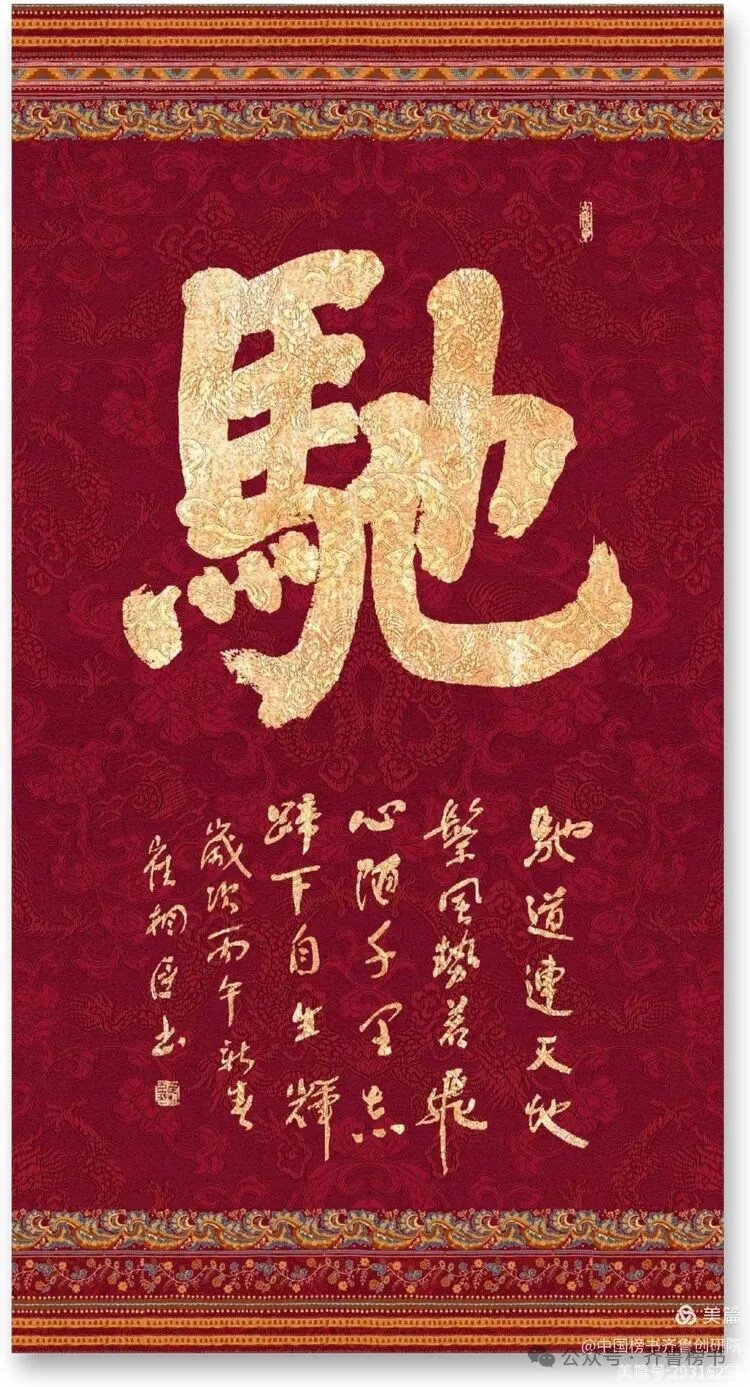 馳
馳道連天地
鬃風勢若飛
心陌千里志
蹄下自生輝
歲次丙午新春
崔相臣书
美篇
@中国榜书齐鲁创研院
公众号·齐鲁榜书